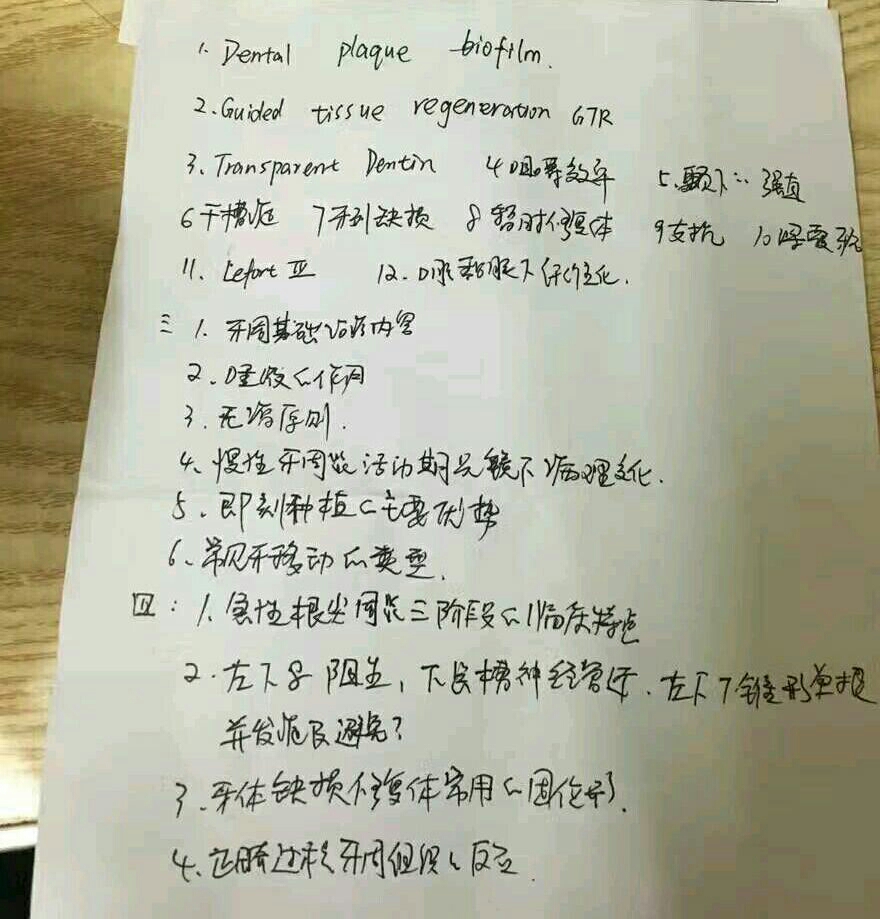 1. Dental plaque biofilm.
2. Guided tissue regeneration GTR
3. Transparent Dentin 4 咀嚼效率 5. 颞下∵强直
6 干槽症 7 牙列缺损 8 暂时修复体 9 支抗 10
11. Lefort Ⅲ 12. 口腔黏膜下纤维化.
三 1. 牙周基础治疗内容
2. 唾液的作用
3. 无瘤原则.
4、慢性牙周炎活动期光镜下病理变化.
5、即刻种植的主要优势
6、常见牙移动的类型.
四: 1. 急性根尖周炎三阶段的临床特点
2. 左下8 阻生, 下齿槽神经管近. 左下7锥形单根
并发症及避免?
3. 牙体缺损修复体常用的固位形.
4. 正畸过程牙周组织的反应.